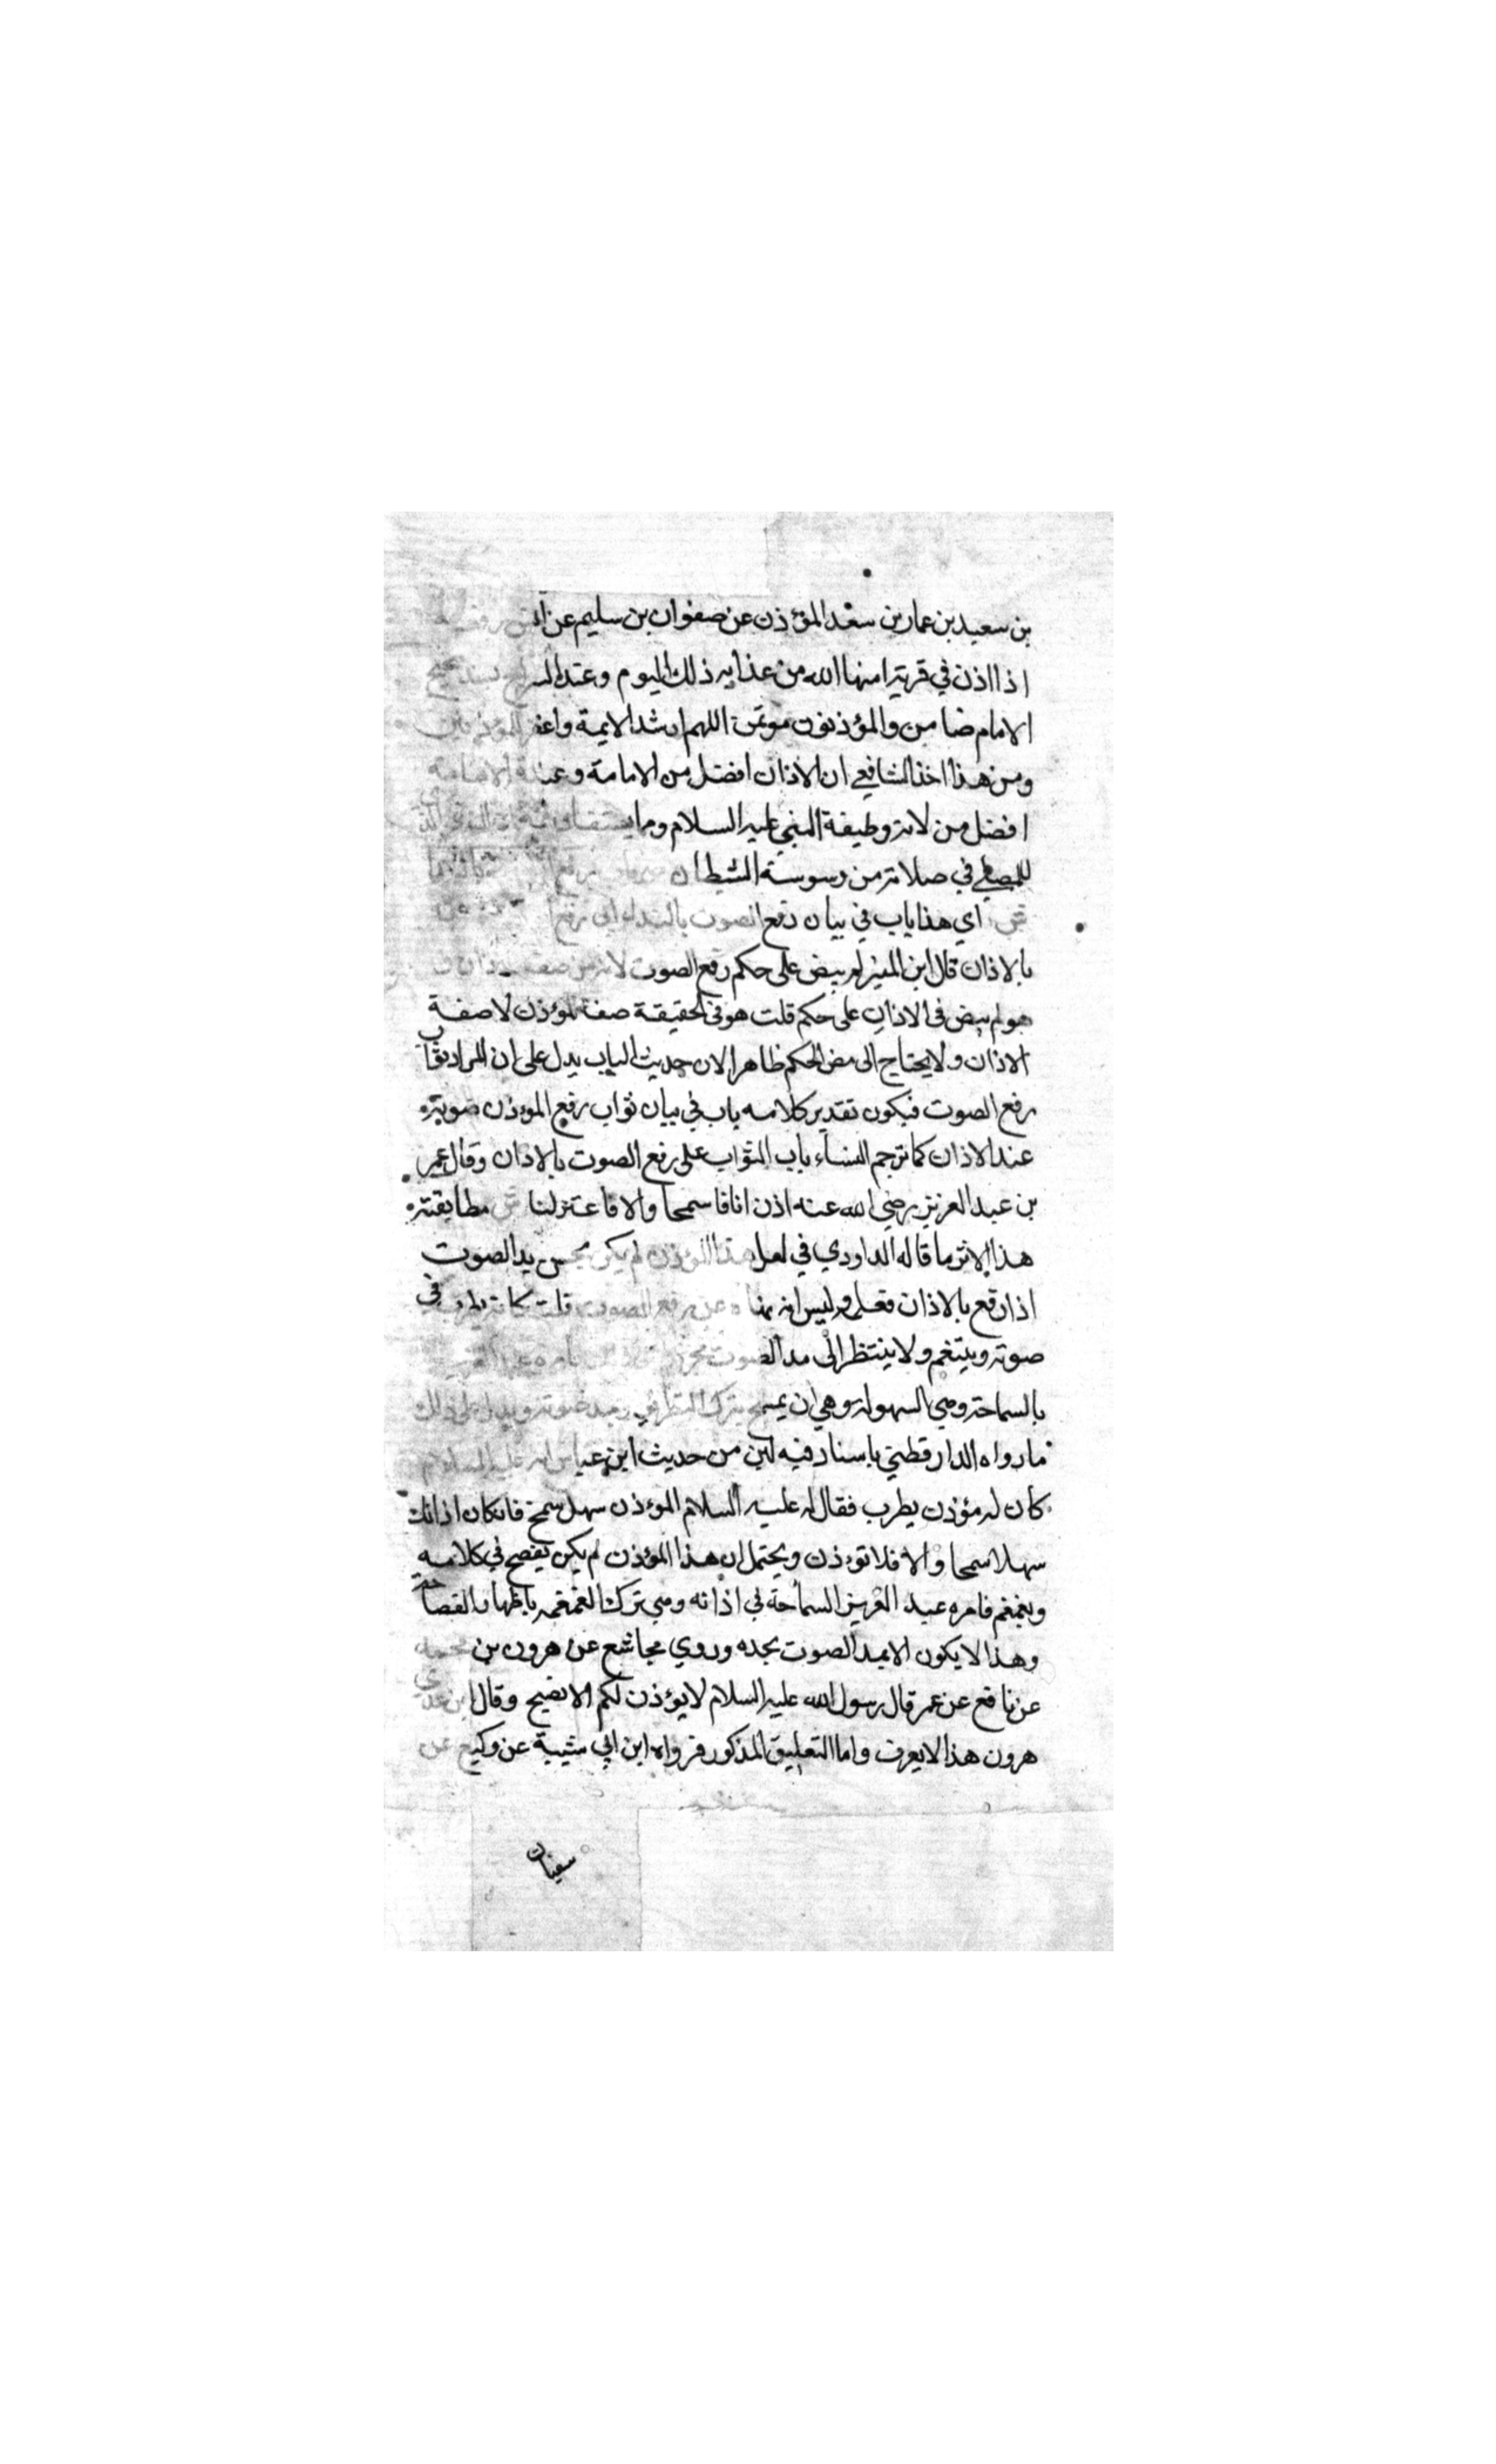 بن سعيد بن عمار بن سعد المؤذن عن صفوان بن سليم عن انس رفعه
اذا اذن في قرية امنها الله من عذابه ذلك اليوم وعند السراج بسند صحيح
الامام ضامن والمؤذنون موتمن اللهم ارشد الايمة واغفر للمؤذنين
ومن هذا اخذ الشافعي ان الاذان افضل من الامامة وعندنا الامامة
افضل من لانه وظيفة النبي عليه السلام وما يستفاد منه ان
للمصلي في صلاته من وسوسة الشيطان ص باب رفع
ش اي هذا باب في بيان رفع الصوت بالنداء اي رفع
بالاذان قال ابن المنير لم ينص على حكم رفع الصوت لانه من صفة الاذان و
هو لم ينص في الاذان على حكم قلت هو في الحقيقة صفة المؤذن لا صفة
الاذان ولا يحتاج الى نص الحكم ظاهرا لان حديث الباب يدل على ان المراد ثواب
رفع الصوت فيكون تقدير كلامه باب في بيان ثواب رفع الموذن صوته
عند الاذان كما ترجم النساء باب الثواب على رفع الصوت بالاذان وقال عمر
بن عبد العزيز رضي الله عنه اذن اذانا سمحا والا فاعتزلنا ش مطابقته
هذا الاثر ما قاله الداودي في لعل هذا المؤذن لم يكن يحسن يد الصوت
اذا رفع بالاذان فعلمه وليس انه نهاه عن رفع الصوت قلت كانه يطرب في
صوته ويتنغم ولا ينتظر الى مد الصوت
بالسماحة وهي السهولة وهي ان يسمح بترك التطريب ويمد صوته ويدل على ذلك
ما رواه الدارقطني باسناد فيه لين من حديث ابن عباس انه عليه السلام
كان له مؤذن يطرب فقال له عليه السلام الموذن سهل سمح فان كان اذانك
سهلا سمحا والا فلا تؤذن ويحتمل ان هذا المؤذن لم يكن يفصح في كلامه
ويغمغم فامره عبد العزيز السماحة في اذانه وهي ترك الغمغمه باظهار الفصاحة
وهذا لا يكون الا بمد الصوت بحده وروي مجاشع عن هرون بن محمد
عن نافع عن عمر قال رسول الله عليه السلام لا يؤذن لكم الا فصيح وقال ابن عدي
هرون هذا لا يعرف واما التعليق المذكور فرواه ابن ابي شيبة عن وكيع عن
سفيان